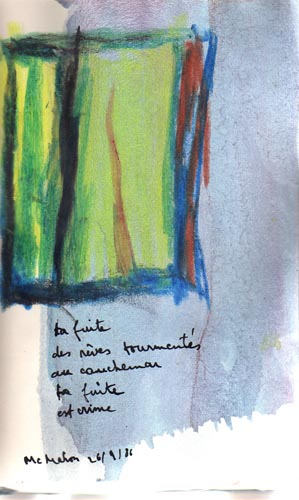 La fuite
des rêves tourmentés
au cauchemar
La fuite
est rime
Mc Mahon 26/9/86